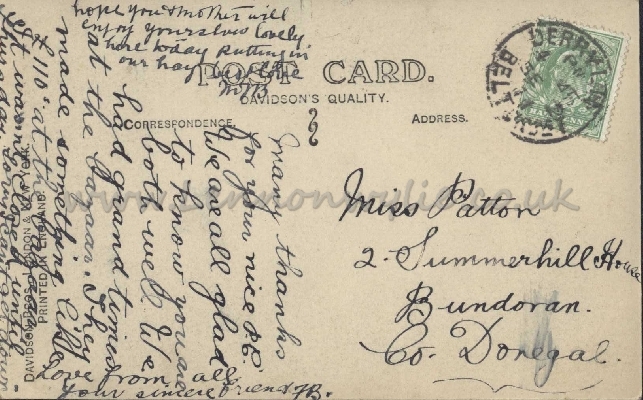 POST CARD.
DAVIDSON'S QUALITY.
CORRESPONDENCE.
ADDRESS.
Miss Patton
2. Summerhill House
Bundoran.
Co. Donegal.
many thanks
for your nice P.C.
We are all glad
to know you are
both well We
had grand times
at the Bazaar. They
made something like
£110 at the
It was
Love from all
your sincere friend
hope you & mother will
enjoy yourselves lovely
here today putting in
our hay
DAVIDSON BROS. LONDON & NEW YORK.
PRINTED IN ENGLAND